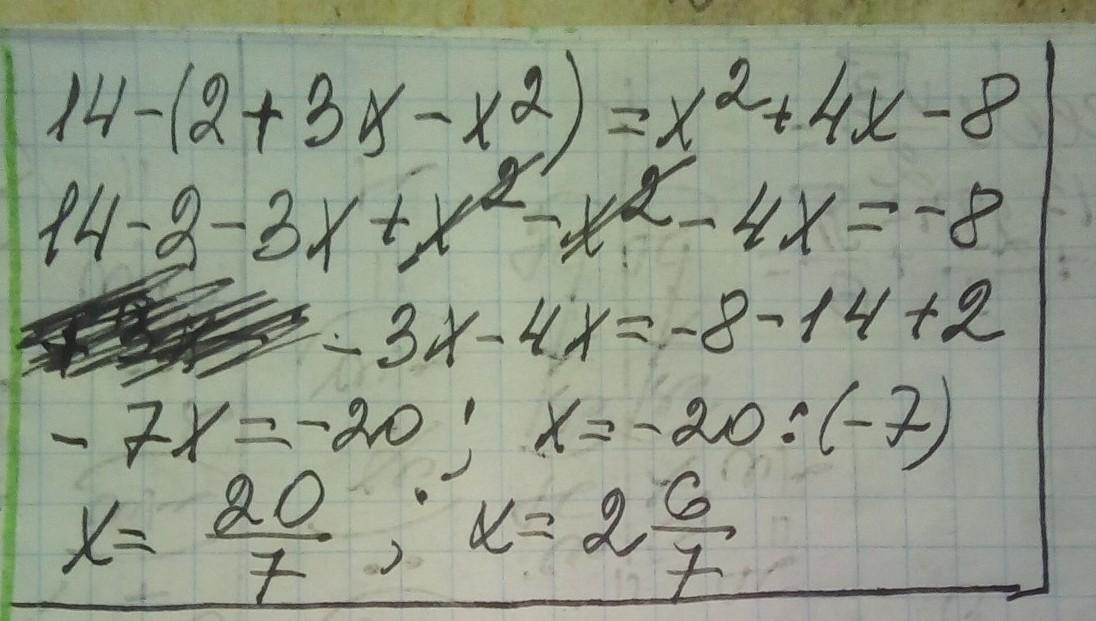 14-(2+3x-x²)=x²+4x-8
14-2-3x+x²-x²-4x=-8
-3x-4x=-8-14+2
-7x=-20; x=-20:(-7)
x=20/7; x=2 6/7